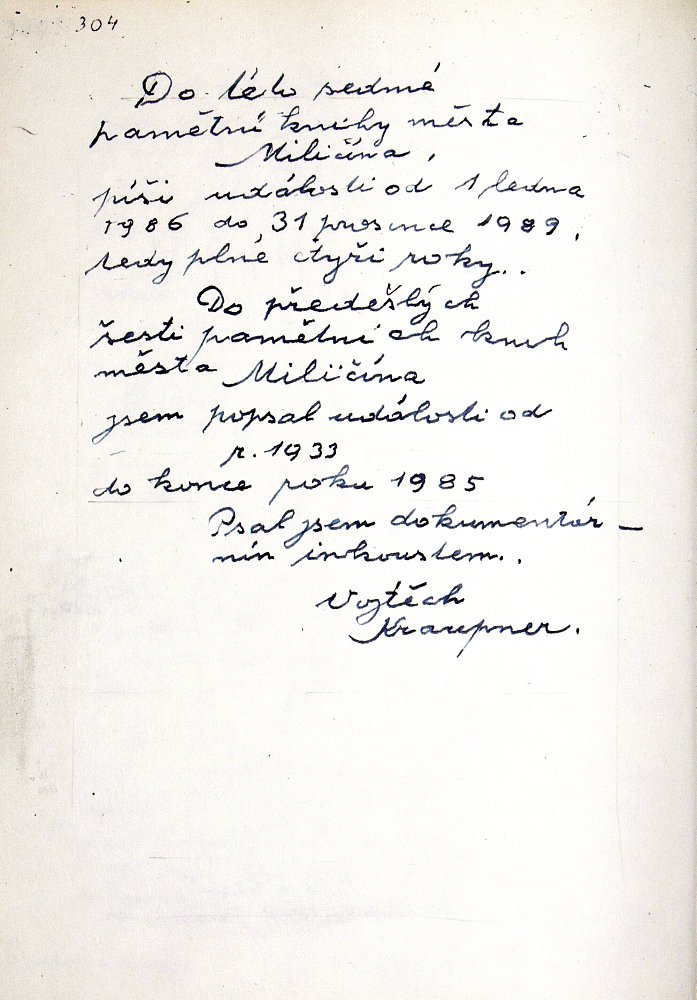 304
Do této sedmé
pamětní knihy města
Miličína,
píši události od 1 ledna
1986 do 31 prosince 1989,
tedy plné čtyři roky..
Do předešlých
šesti pamětních knih
města Miličína
jsem popsal události od
r. 1933
do konce roku 1985
Psal jsem dokumentár-
ním inkoustem..
Vojtěch
Kraupner.